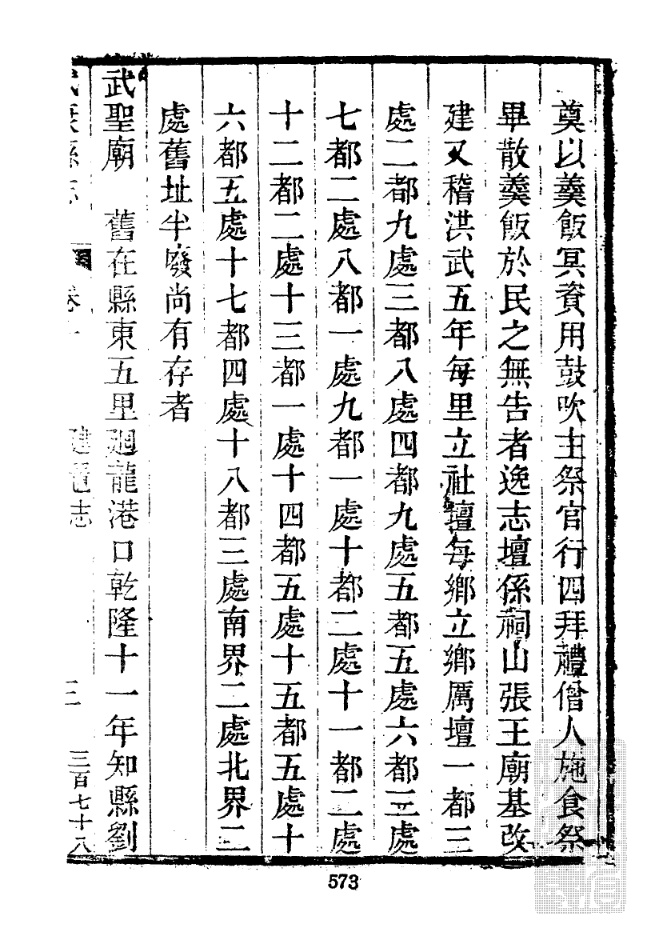 奠以羹飯冥資用鼓吹主祭官行四拜禮僧人施食祭
畢散羹飯於民之無告者逸志壇係祠山張王廟基改
建又稽洪武五年每里立社壇每鄉立鄉厲壇一都三
處二都九處三都八處四都九處五都五處六都三處
七都二處八都一處九都一處十都二處十一都二處
十二都二處十三都一處十四都五處十五都五處十
六都五處十七都四處十八都三處南界二處北界二
處舊址半廢尚有存者
武聖廟 舊在縣東五里廻龍港口乾隆十一年知縣劉
康縣志 卷 建置志 三 三百七十八
573